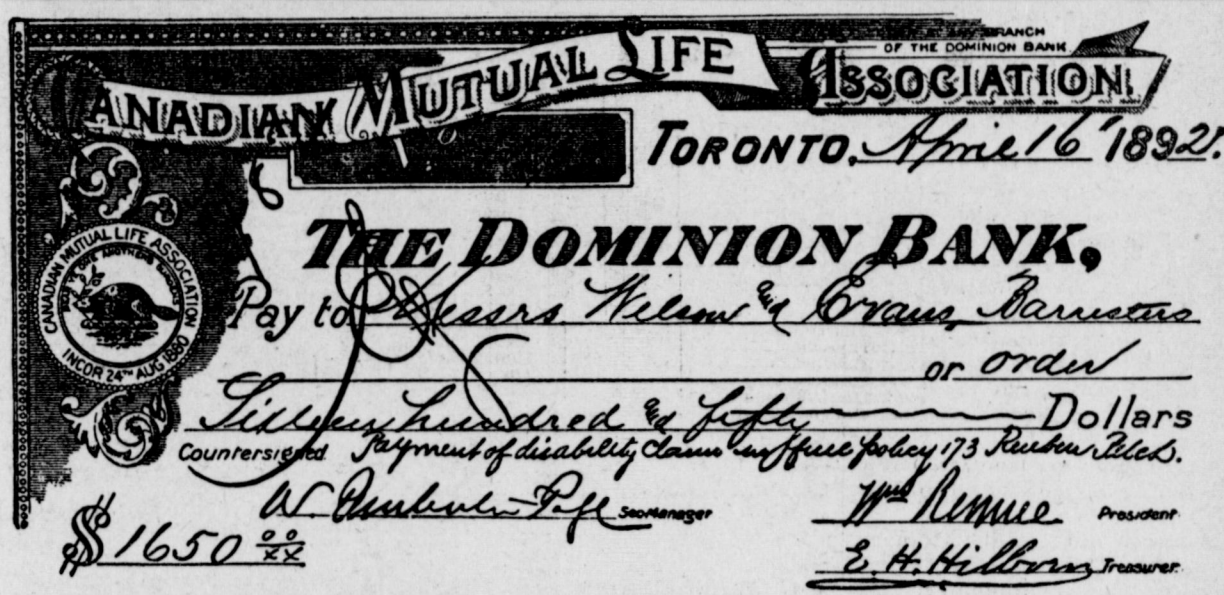 BRANCH
OF THE DOMINION BANK
CANADIAN MUTUAL LIFE ASSOCIATION
TORONTO, April 16 1892.
THE DOMINION BANK,
Pay to Messrs Wilson and Evans, Barristers
or order
Sixteen hundred and fifty Dollars
Countersigned Payment of disability claim in full policy 173 Reuben
W. Pemberton Page Sec. Manager
Wm Rennie President
$1650 00/xx
E. H. Hilborn Treasurer.
CANADIAN MUTUAL LIFE ASSOCIATION
BEAR YE ONE ANOTHERS BURDENS
INCOR 24TH AUG 1880